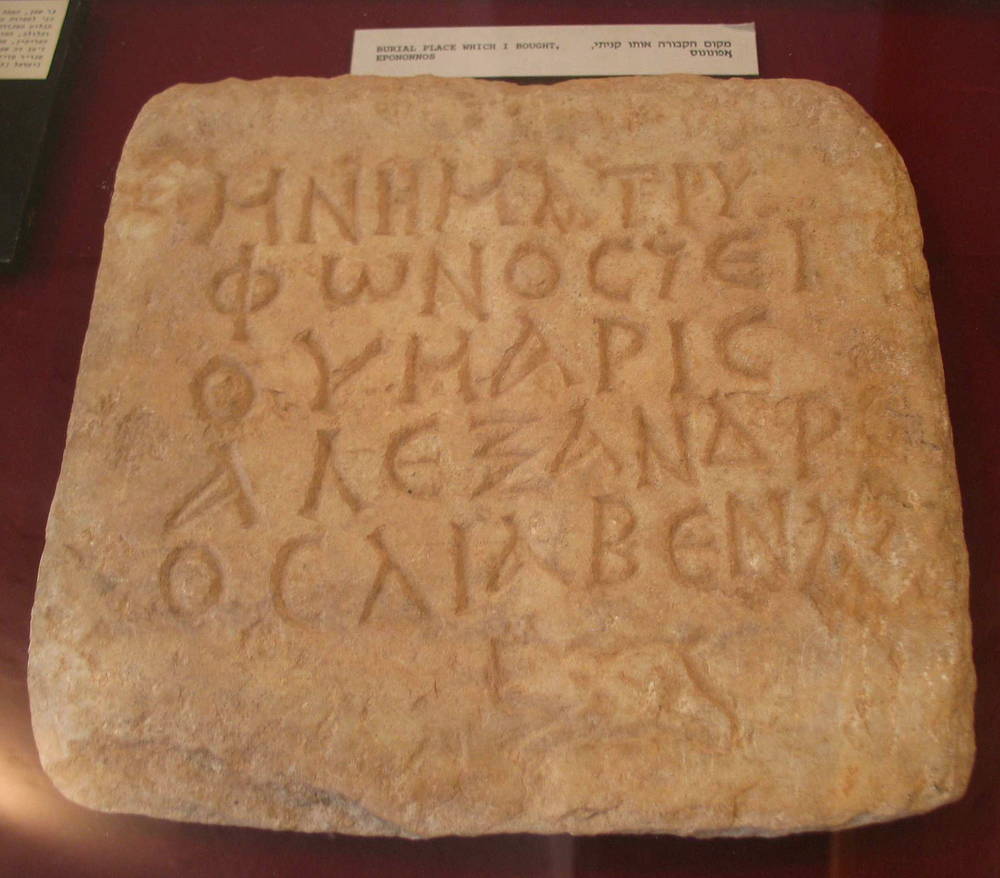 BURIAL PLACE WHICH I BOUGHT,
EPONONNOS
מקום הקבורה אותו קניתי,
אפונונוס
ΜΝΗΜΑ ΤΡΥ
ΦωΝΟϹΥΕΙ
ΟΥΜΑΡΙϹ
ΑΛΕΞΑΝΔΡ
ΟϹΛΙΑΒΕΝΑ